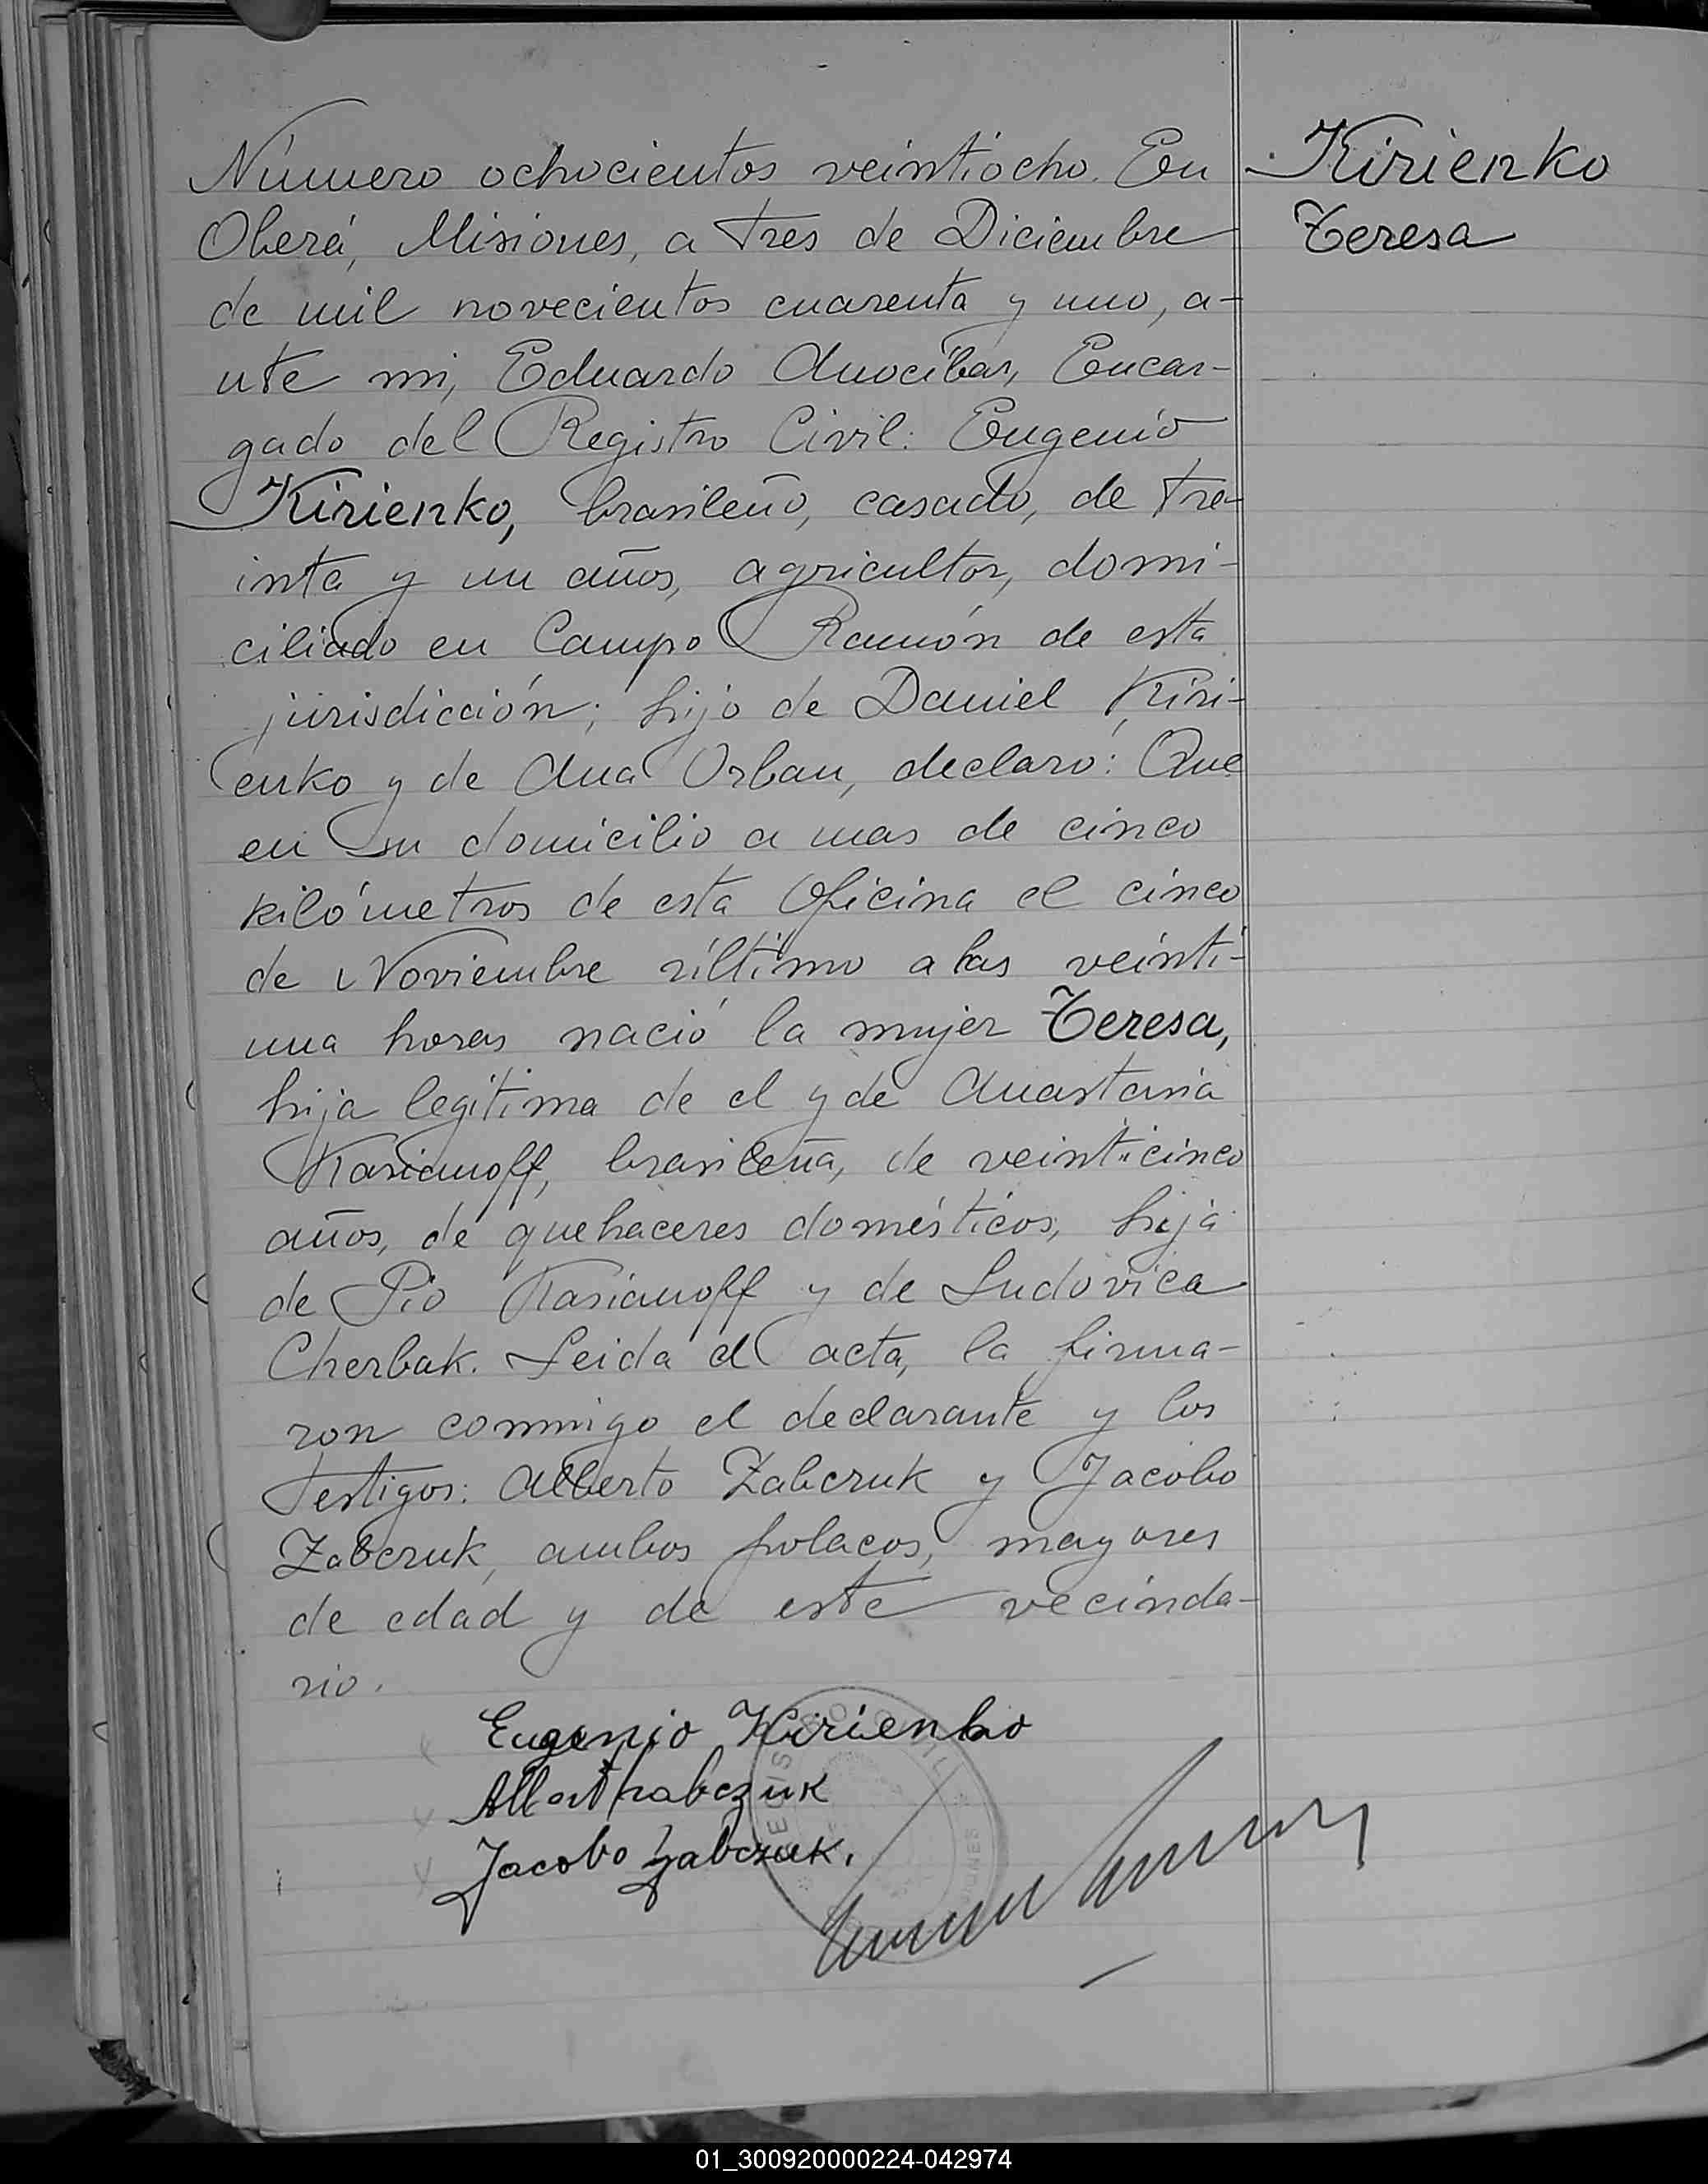 Número ochocientos veintiocho. En
Kirienko
Oberá, Misiones, a tres de Diciembre
Teresa
de mil novecientos cuarenta y uno, a-
nte mi, Eduardo Anocíbar, Encar-
gado del Registro Civil: Eugenio
Kirienko, brasileño, casado, de tre-
inta y un años, agricultor, domi-
ciliado en Campo Ramón de esta
jurisdicción; hijo de Daniel Kiri-
enko y de Ana Orban, declaró: Que
en su domicilio a mas de cinco
kilómetros de esta Oficina el cinco
de Noviembre último a las veinti-
una horas nació la mujer Teresa,
hija legítima de el y de Anastasia
Kasianoff, brasileña, de veinticinco
años, de quehaceres domésticos, hija
de Pío Kasianoff y de Ludovica
Cherbak. Leida el acta, la firma-
ron conmigo el declarante y los
testigos: Alberto Zabczuk y Jacobo
Zabczuk, ambos polacos, mayores
de edad y de este vecinda-
rio.
Eugenio Kirienko
Albert Zabczuk
Jacobo Zabczuk.
01_300920000224-042974